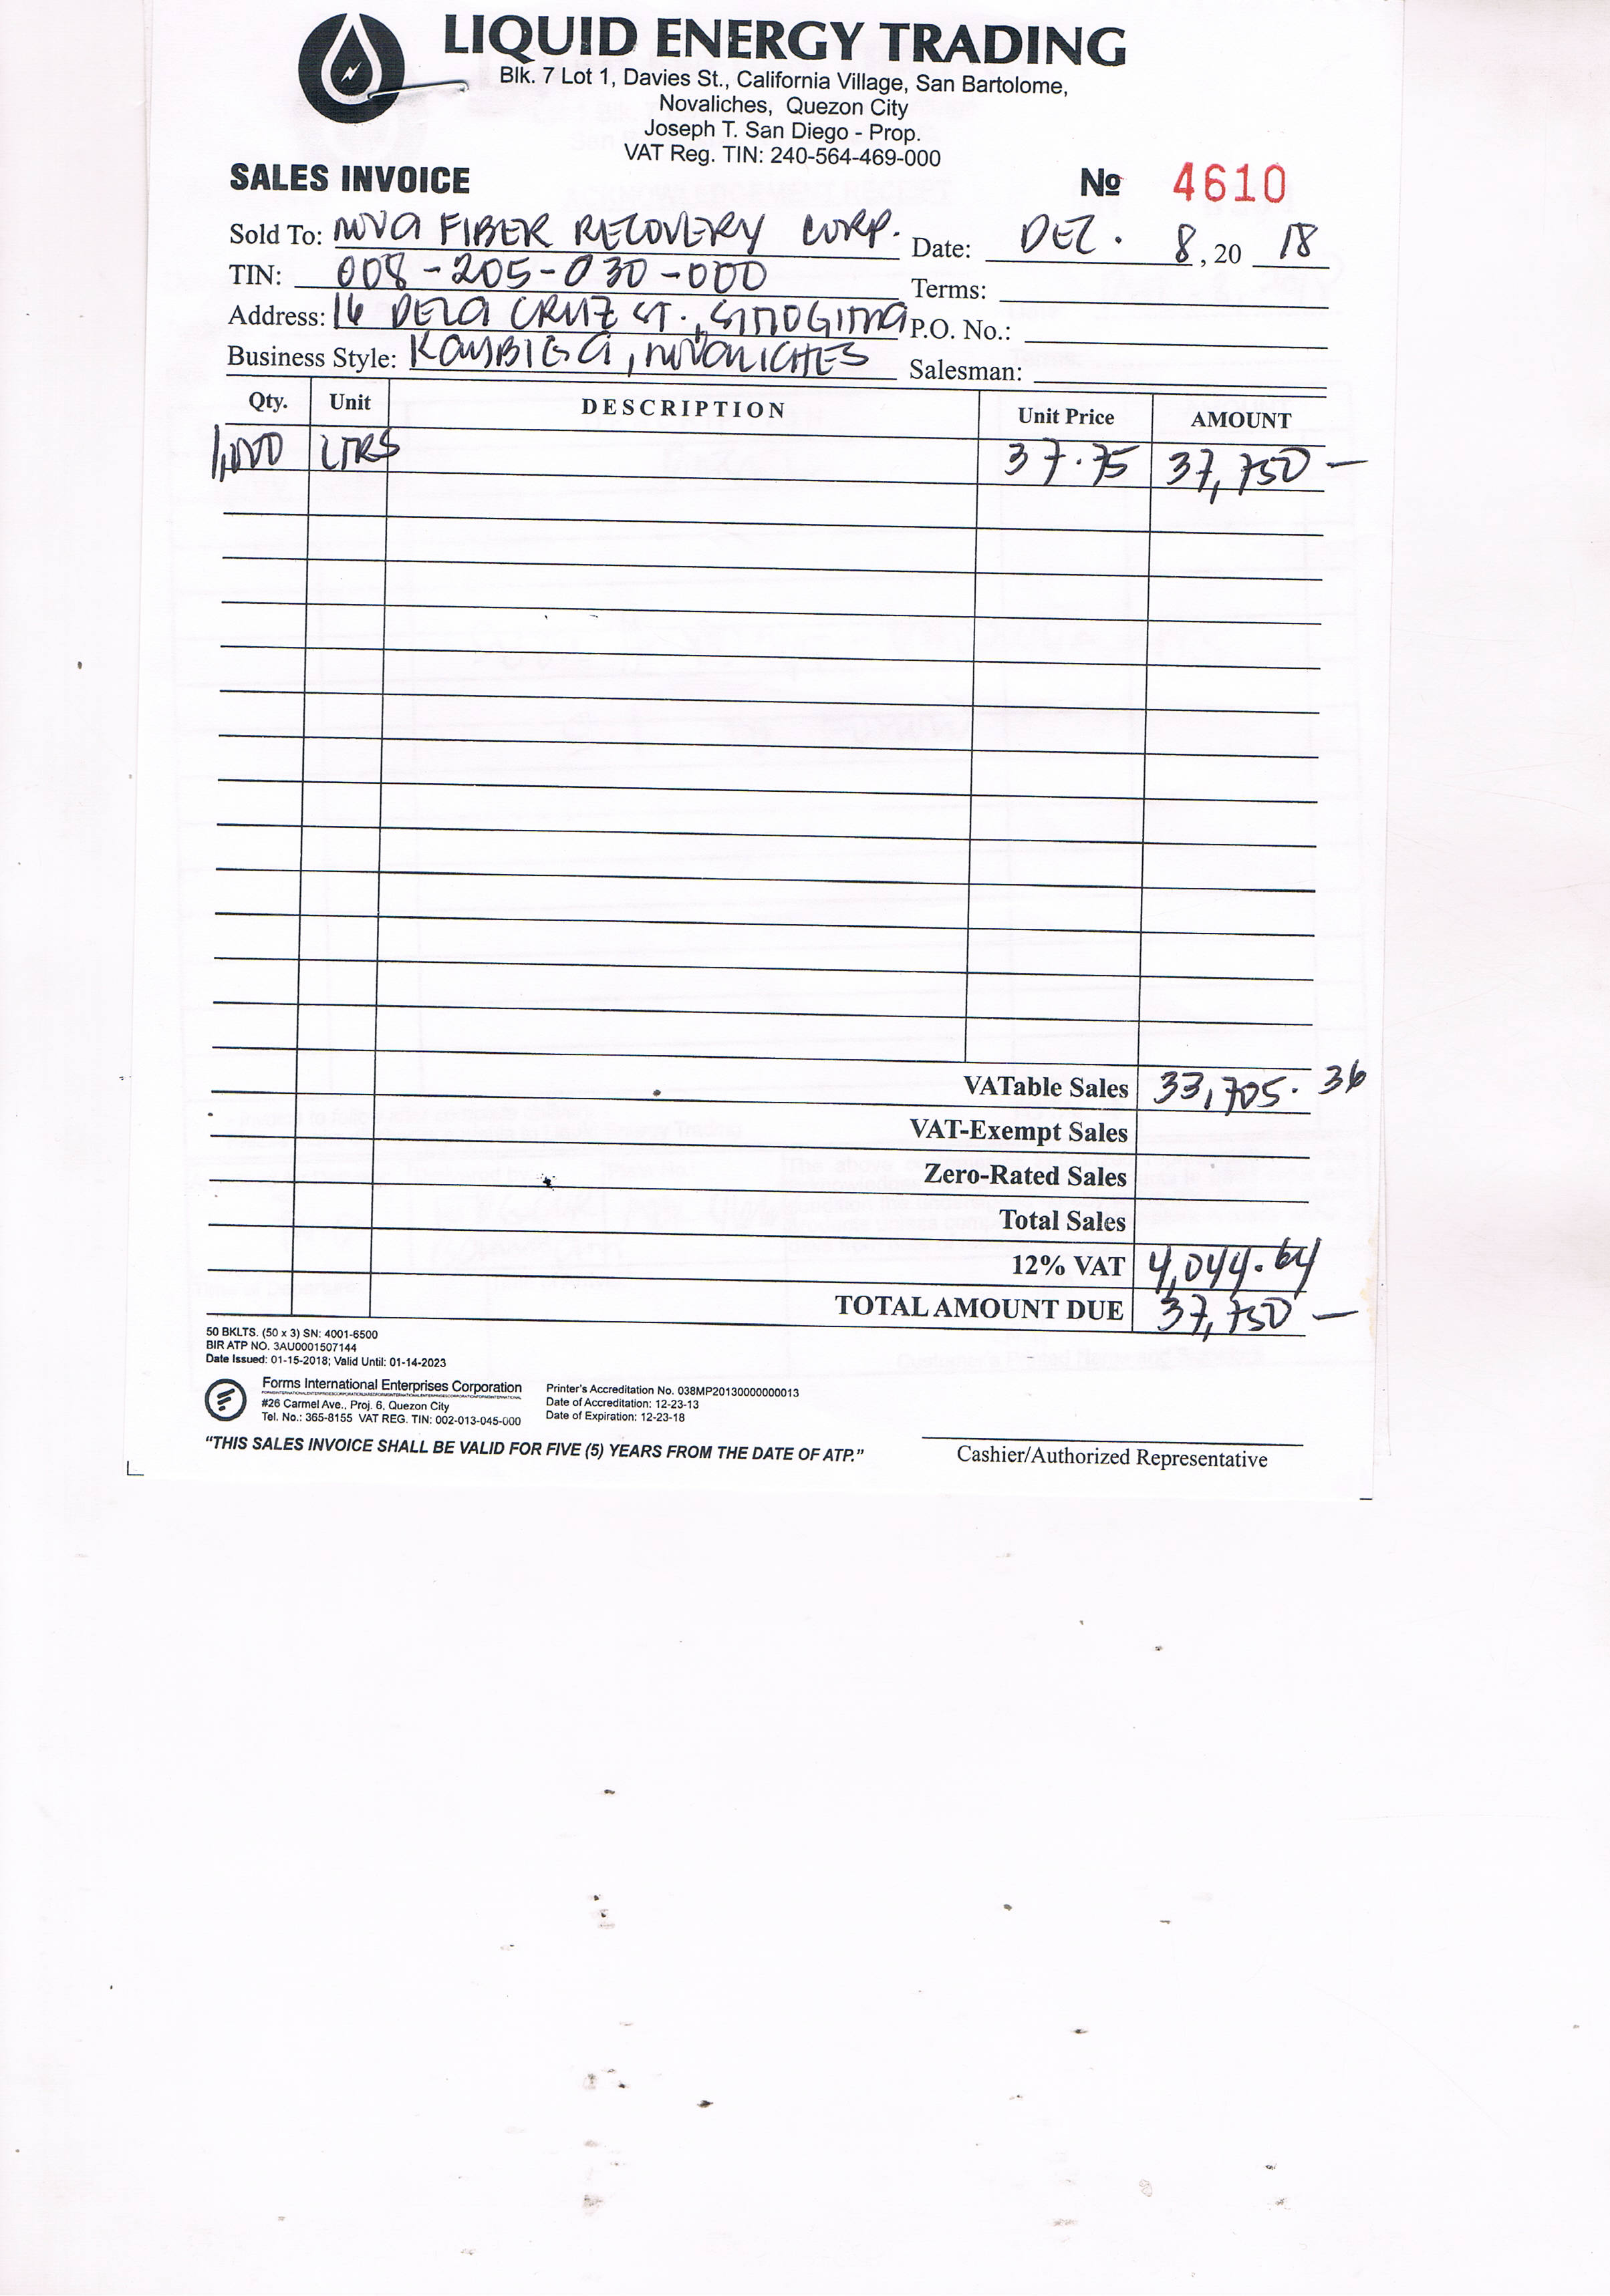 LIQUID ENERGY TRADING
Blk. 7 Lot 1, Davies St., California Village, San Bartolome,
Novaliches, Quezon City
Joseph T. San Diego - Prop.
VAT Reg. TIN: 240-564-469-000
SALES INVOICE № 4610
Sold To: NOVA FIBER RECOVERY CORP. Date: DEC. 8, 20 18
TIN: 008-205-030-000 Terms:
Address: 16 DELA CRUZ ST., P.O. No.:
Business Style: KAYBIGA, NOVALICHES Salesman:
Qty. Unit DESCRIPTION Unit Price AMOUNT
1,000 LTRS 37.75 37,750 —
VATable Sales 33,705.36
VAT-Exempt Sales
Zero-Rated Sales
Total Sales
12% VAT 4,044.64
TOTAL AMOUNT DUE 37,750 —
50 BKLTS. (50 x 3) SN: 4001-6500
BIR ATP NO. 3AU0001507144
Date Issued: 01-15-2018; Valid Until: 01-14-2023
Forms International Enterprises Corporation
#26 Carmel Ave., Proj. 6, Quezon City
Tel. No.: 365-8155 VAT REG. TIN: 002-013-045-000
Printer's Accreditation No. 038MP20130000000013
Date of Accreditation: 12-23-13
Date of Expiration: 12-23-18
"THIS SALES INVOICE SHALL BE VALID FOR FIVE (5) YEARS FROM THE DATE OF ATP."
Cashier/Authorized Representative